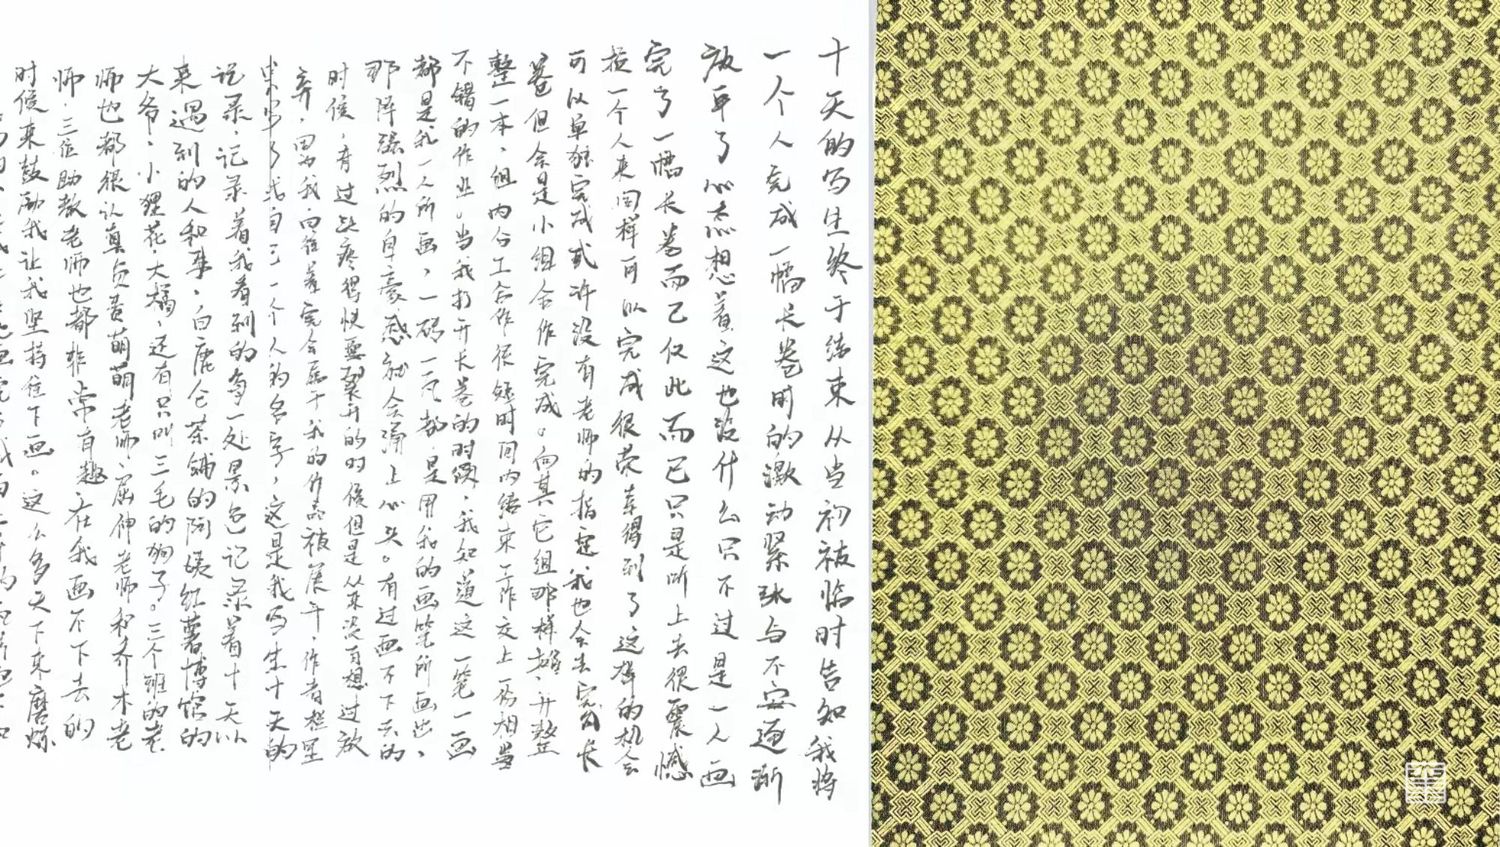 十天的写生终于结束从当初被临时告知我将
一个人完成一幅长卷时的激动紧张与不安逐渐
放平了心态想着这也没什么只不过是一人画
完了一幅长卷而已仅此而已只是听上去很震憾
换一个人来同样可以完成很荣幸得到了这样的机会
可以单独完成或许没有老师的指定我也会去完成长
卷但会是小组合作完成。向其它组那样 并整
整一本,组内分工合作很短时间内结束工作交上一份相当
不错的作业。当我打开长卷的时候,我知道这一笔一画
都是我一人所画,一砖一瓦都是用我的画笔所画出,
那阵强烈的自豪感就会涌上心头。有过画不下去的
时候,有过 疼得快要裂开的时候但是从来没有想过放
弃,因为我 着完全属于我的作品被展开,作者栏里
一个人的名字,这是我写生十天的
记录,记录着我看到的每一处景色记录着十天以
来遇到的人和事,白鹿仓茶铺的阿姨红薯博馆的
大爷,小狸花大橘,还有只叫三毛的狗子。三个班的老
师也都很认真负责萌萌老师、屈伸老师和乔木老
师,三位助教老师也都非常有趣在我画不下去的
时候来鼓励我让我坚持往下画。这么多天下来磨炼